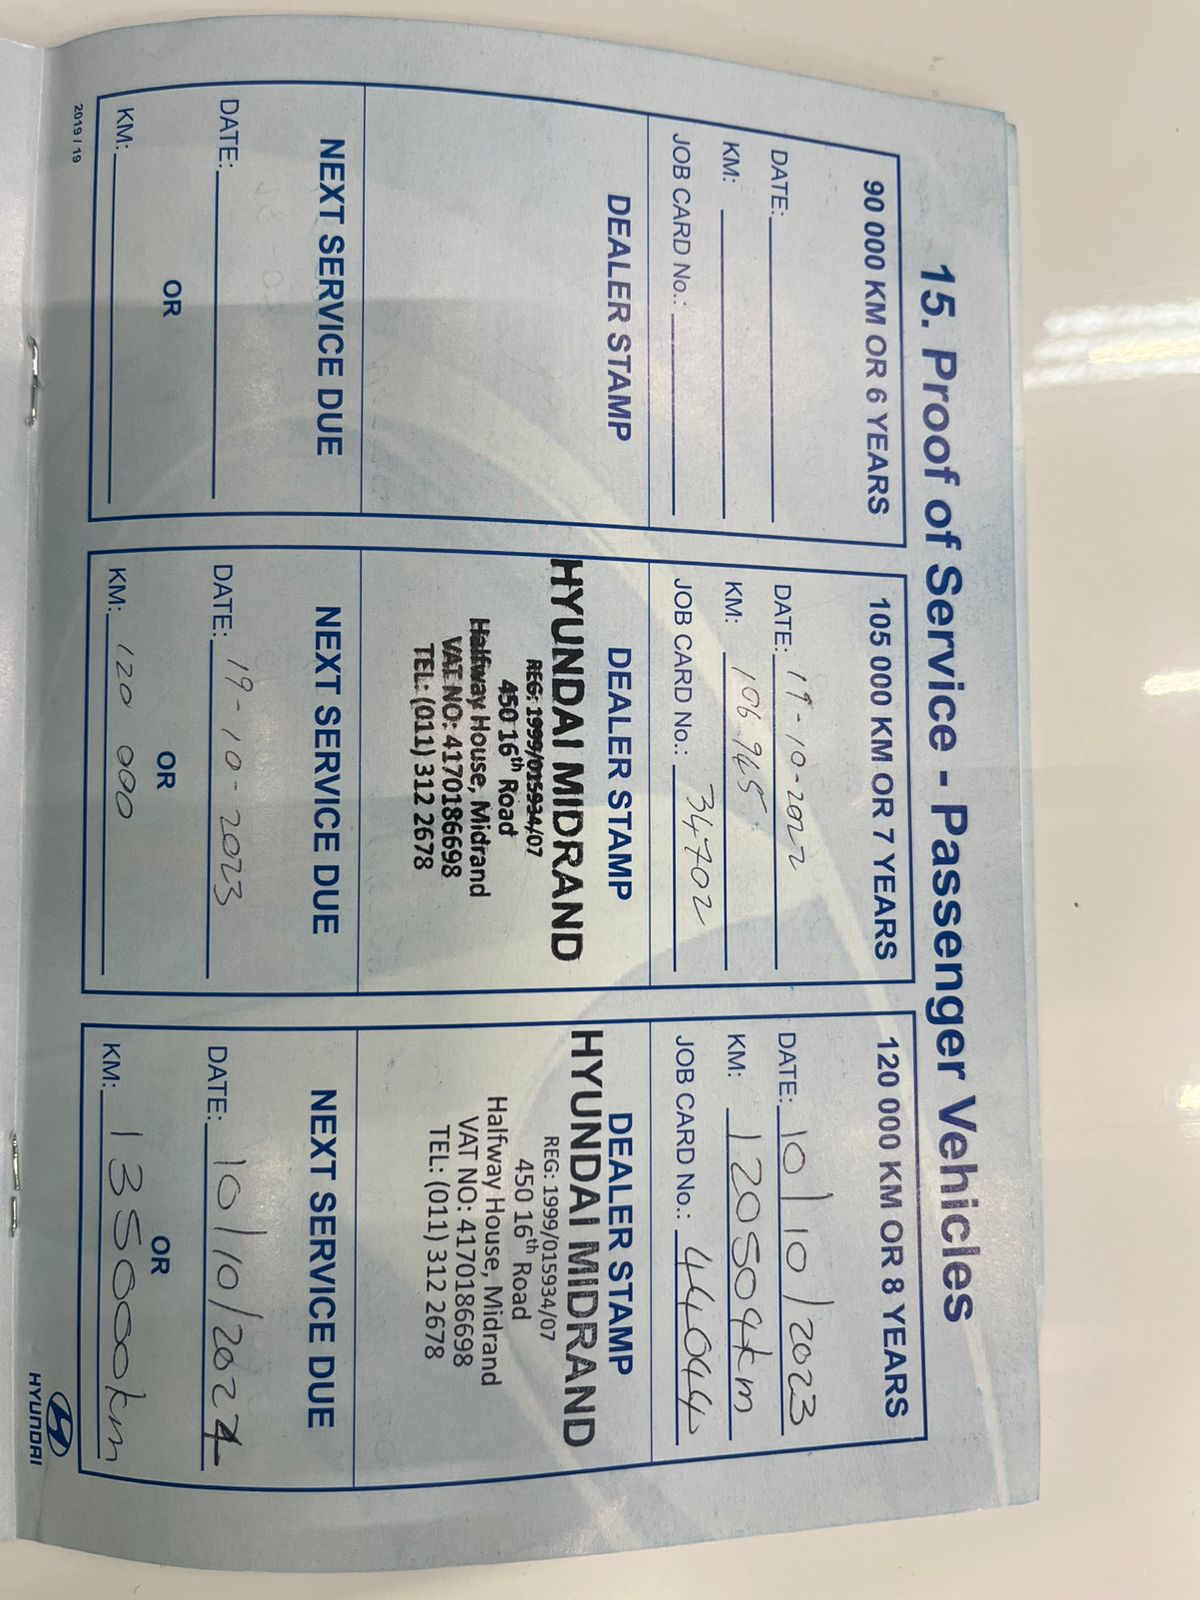 15. Proof of Service - Passenger Vehicles
90 000 KM OR 6 YEARS
DATE:
KM:
JOB CARD No.:
DEALER STAMP
NEXT SERVICE DUE
DATE:
OR
KM:
105 000 KM OR 7 YEARS
DATE: 19-10-2022
KM: 106 965
JOB CARD No.: 34702
DEALER STAMP
HYUNDAI MIDRAND
REG: 1999/015934/07
450 16th Road
Halfway House, Midrand
VAT NO: 4170186698
TEL: (011) 312 2678
NEXT SERVICE DUE
DATE: 19-10-2023
OR
KM: 120 000
120 000 KM OR 8 YEARS
DATE: 10/10/2023
KM: 120504km
JOB CARD No.: 44044
DEALER STAMP
HYUNDAI MIDRAND
REG: 1999/015934/07
450 16th Road
Halfway House, Midrand
VAT NO: 4170186698
TEL: (011) 312 2678
NEXT SERVICE DUE
DATE: 10/10/2024
OR
KM: 135000km
2019 / 19
HYUNDAI